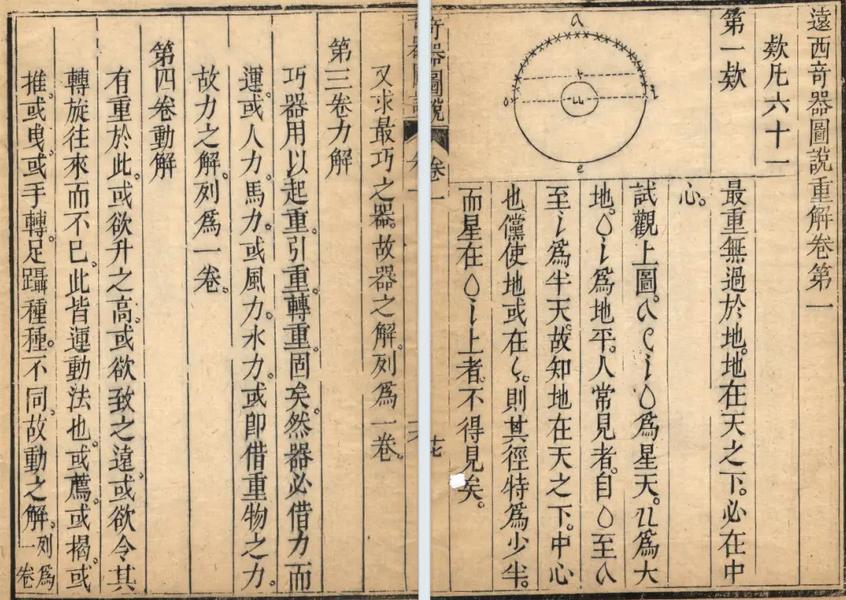 遠西奇器圖說重解卷第一
欵凡六十一
第一欵
a
o
i
e
最重無過於地。地在天之下。必在中
心。
試觀上圖。a e i o 為星天。u 為大
地。o i 為地平。人常見者。自 o 至 a
至 i 為半天。故知地在天之下。中心
也。儻使地或在 則其徑特為少半。
而星在 o i 上者。不得見矣。
奇器圖說
卷一
又求最巧之器。故器之解。列為一卷。
第三卷力解
巧器用以起重。引重。轉重。固矣。然器必借力而
運。或人力。馬力。或風力。水力。或即借重物之力。
故力之解。列為一卷。
第四卷動解
有重於此。或欲升之高。或欲致之遠。或欲令其
轉旋往來而不已。此皆運動法也。或薦。或揭。或
推。或曳。或手轉。足躡種種。不同。故動之解。列為一卷